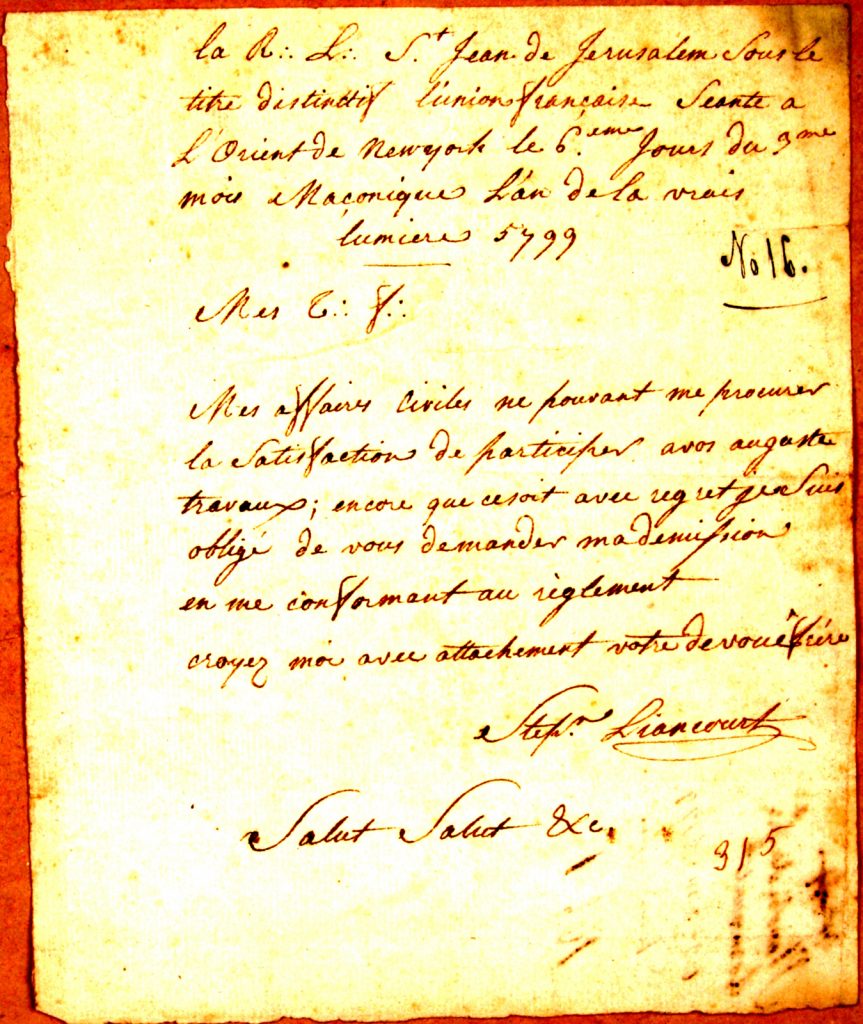 la R∴ L∴ S.t Jean de Jerusalem Sous le
titre distinctif l'union française Seante a
L'Orient de Newyork le 6.eme Jours du 3me
mois Maçonique L'an de la vrais
lumiere 5799
No 16.
Mes T∴ f∴
Mes affaires Civiles ne pouvant me procurer
la Satisfaction de participer avos auguste
travaux; encore que cesoit avec regret je Suis
obligé de vous demander mademission
en me conformant au règlement
croyez moi avec attachement votre devoué frére
Stepn. Liancourt
Salut Salut &c,
315